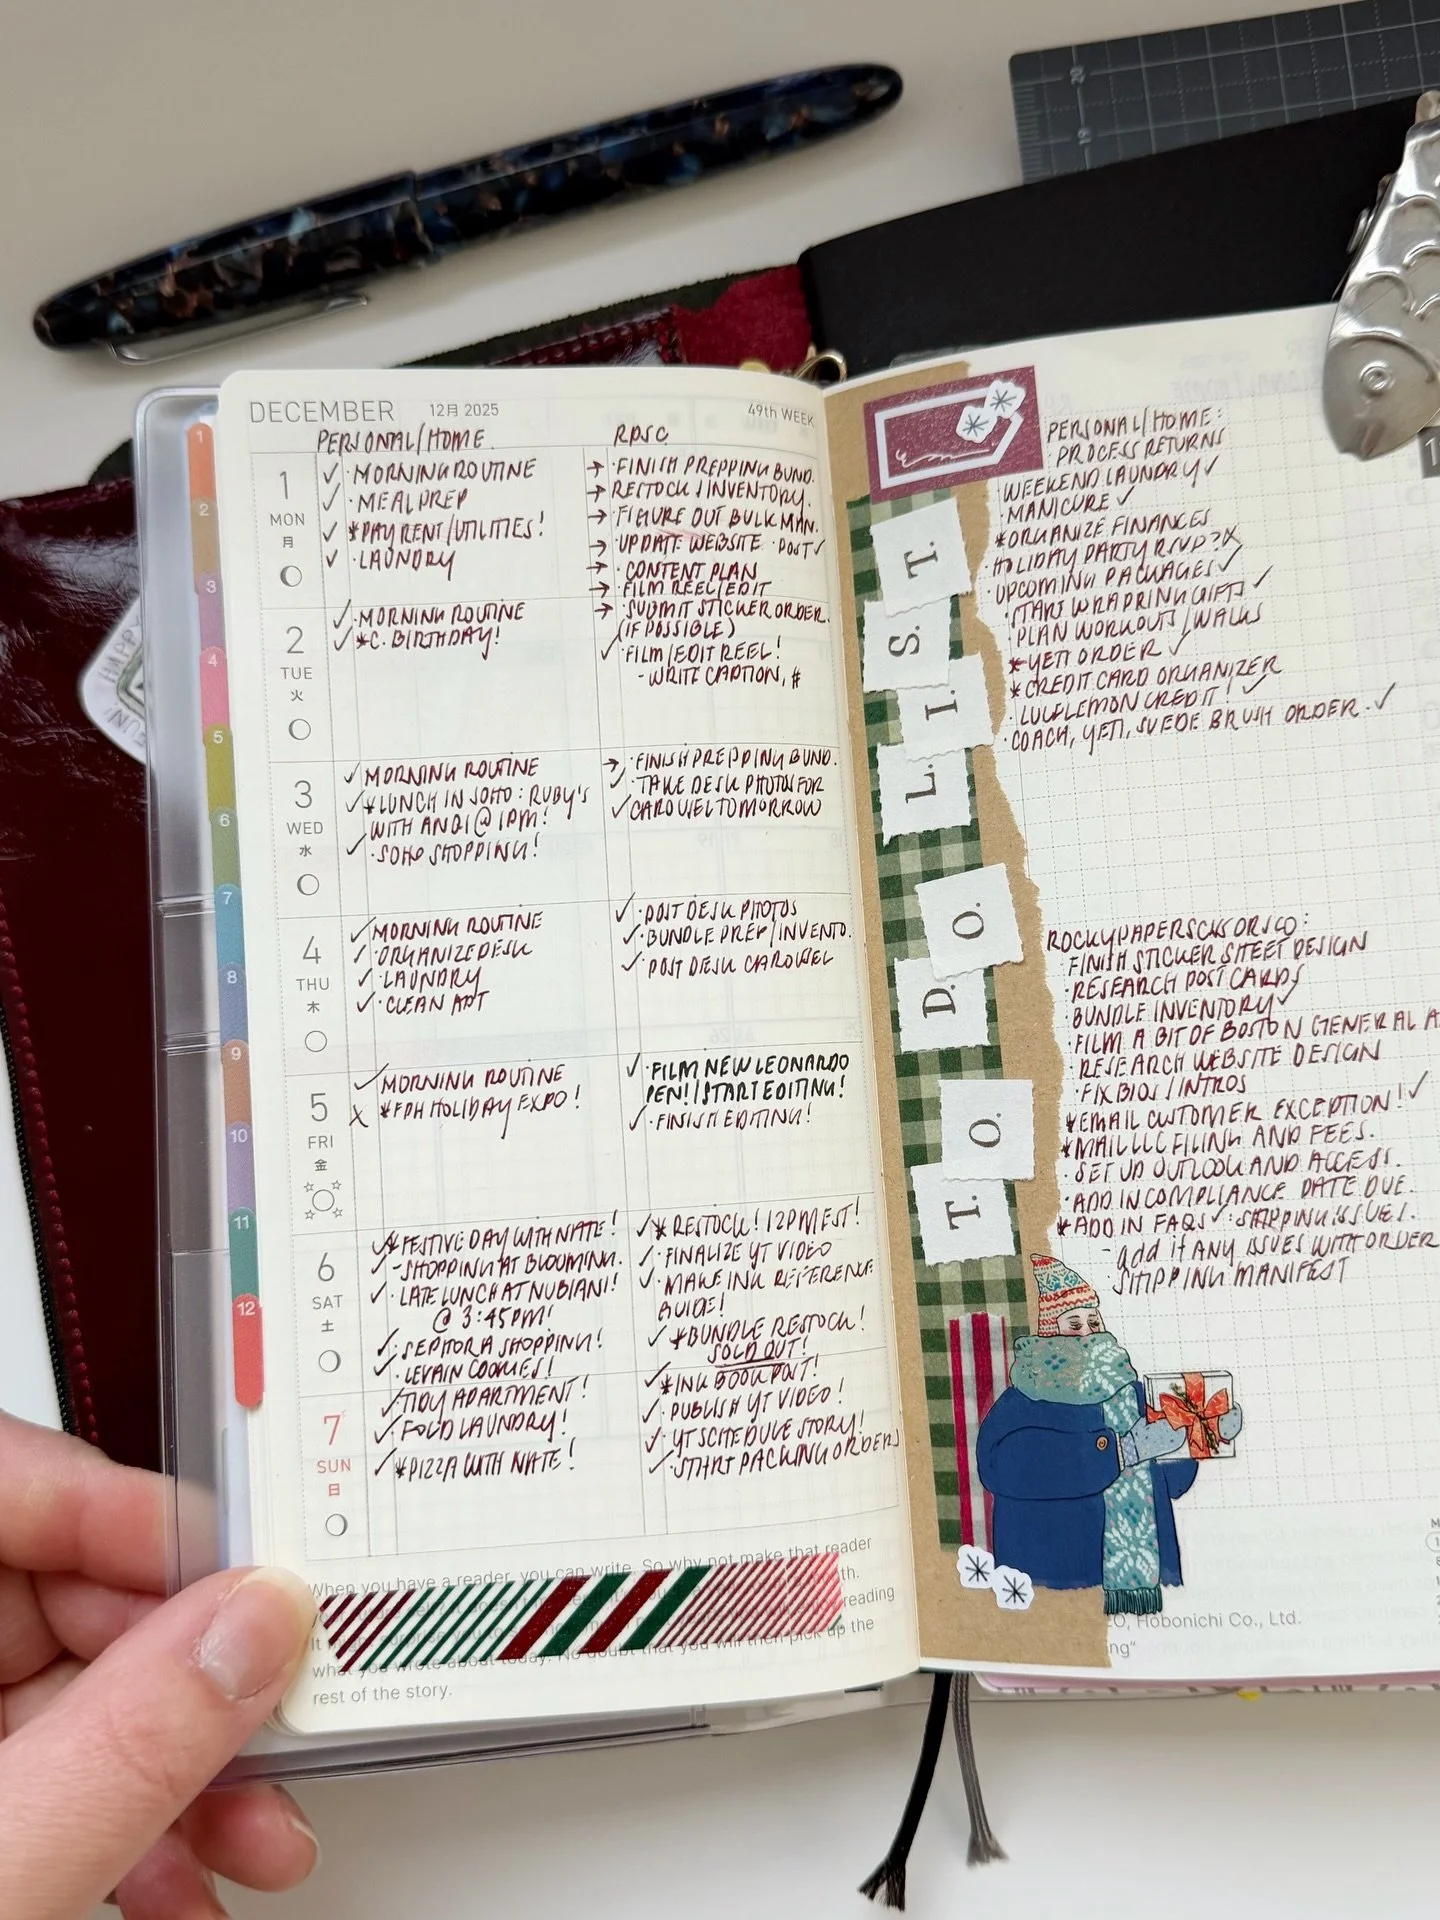 DECEMBER 12月 2025 49th WEEK
PERSONAL/HOME RPSC
1
MON
月
✓ · MORNING ROUTINE
✓ · MEAL PREP
✓ *PAY RENT/UTILITIES!
✓ · LAUNDRY
→ · FINISH PREPPING BUND.
→ RESTOCK / INVENTORY.
→ · FIGURE OUT BULK MAN.
→ · UPDATE WEBSITE · POST ✓
→ · CONTENT PLAN
→ · FILM REEL/EDIT
→ · SUBMIT STICKER ORDER
(IF POSSIBLE)
2
TUE
火
✓ · MORNING ROUTINE
✓ *C. BIRTHDAY!
✓ · FILM/EDIT REEL!
- WRITE CAPTION, #
3
WED
水
✓ MORNING ROUTINE
✓ *LUNCH IN SOHO: RUBY'S
WITH ANQI @ 1PM!
✓ · SOHO SHOPPING!
→ · FINISH PREPPING BUND.
✓ · TAKE DESK PHOTOS FOR
✓ CAROUSEL TOMORROW
4
THU
木
✓ MORNING ROUTINE
✓ · ORGANIZE DESK
✓ · LAUNDRY
✓ · CLEAN APT
✓ · POST DESK PHOTOS
✓ · BUNDLE PREP/INVENTO.
✓ · POST DESK CAROUSEL
5
FRI
金
✓ MORNING ROUTINE
X *FPH HOLIDAY EXPO!
✓ · FILM NEW LEONARDO
PEN!/START EDITING!
✓ · FINISH EDITING!
6
SAT
土
✓ *FESTIVE DAY WITH NATE!
✓ - SHOPPING AT BLOOMING.
✓ · LATE LUNCH AT NUBIANI!
@ 3:45PM!
✓ · SEPHORA SHOPPING!
✓ · LEVAIN COOKIES!
✓ * RESTOCK! 12PM EST!
✓ · FINALIZE YT VIDEO
✓ · MAKE INK REFERENCE
GUIDE!
✓ *BUNDLE RESTOCK!
SOLD OUT!
7
SUN
日
✓ TIDY APARTMENT!
✓ · FOLD LAUNDRY!
✓ *PIZZA WITH NATE!
✓ *INK BOOK POST!
✓ · PUBLISH YT VIDEO!
✓ · YT SCHEDULE STORY!
✓ · START PACKING ORDERS
When you have a reader, you can write. So why not make that reader
reading
what you wrote about today. No doubt that you will then pick up the
rest of the story.
1
2
3
4
5
6
7
8
9
10
11
12
T. O. D. O. L. I. S. T.
PERSONAL/HOME:
· PROCESS RETURNS
· WEEKEND LAUNDRY ✓
· MANICURE ✓
*ORGANIZE FINANCES
· HOLIDAY PARTY RSVP? X
· UPCOMING PACKAGES ✓
· START WRAPPING GIFTS ✓
· PLAN WORKOUTS/WALKS
*YETI ORDER ✓
*CREDIT CARD ORGANIZER
· LULULEMON CREDIT! ✓
· COACH, YETI, SUEDE BRUSH ORDER. ✓
ROCKYPAPERSCISSORSCO:
· FINISH STICKER SHEET DESIGN
· RESEARCH POST CARDS
· BUNDLE INVENTORY ✓
· FILM A BIT OF BOSTON GENERAL
· RESEARCH WEBSITE DESIGN
· FIX BIOS/INTROS
*EMAIL CUSTOMER EXCEPTION! ✓
*MAIL LLC FILING AND FEES.
· SET UP OUTLOOK AND ACCESS.
· ADD IN COMPLIANCE DATE DUE.
*ADD IN FAQS ✓: SHIPPING ISSUES.
- add if ANY ISSUES WITH ORDER
· SHIPPING MANIFEST
Hobonichi Co., Ltd.